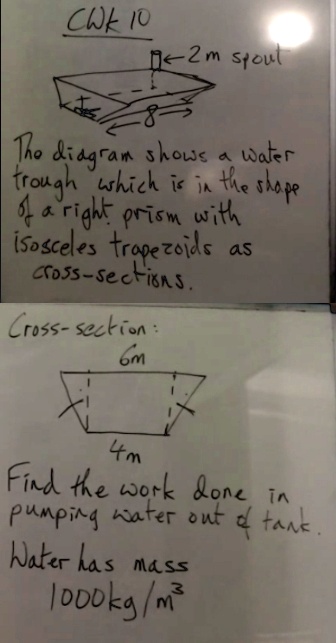 CWk 10
← 2m spout
8
The diagram shows a water
trough which is in the shape
of a right prism with
isosceles trapezoids as
cross-sections.
Cross-section:
6m
4m
Find the work done in
pumping water out of tank.
Water has mass
1000kg/m³